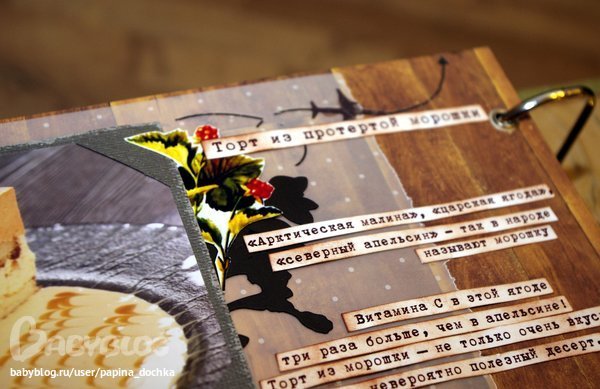 Торт из протертой морошки
«Арктическая малина», «царская ягода»,
«северный апельсин» - так в народе
называют морошку
Витамина С в этой ягоде
три раза больше, чем в апельсине!
Торт из морошки - не только очень
невероятно полезный десерт.
BABYBLOG
babyblog.ru/user/papina_dochka